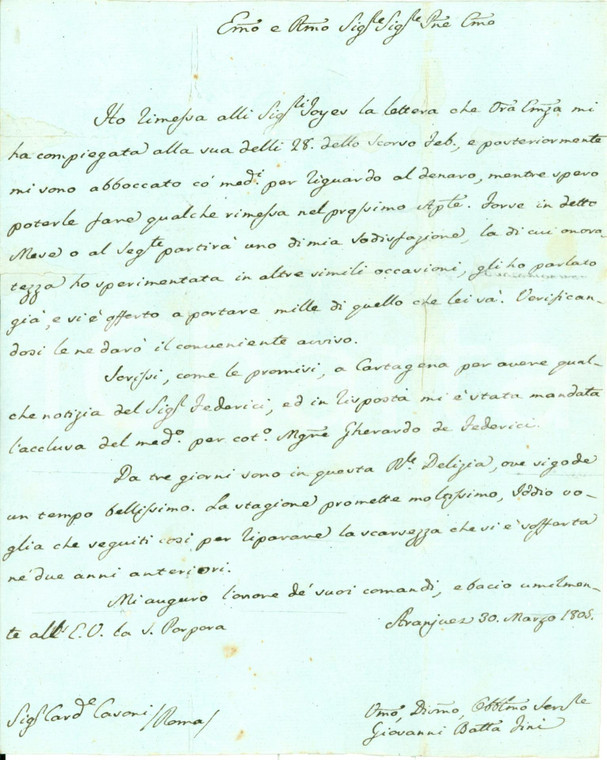 Emo e Rmo Sigre Sigre Pne Cmo
Ho rimessa alli Sigri Joyes la lettera che Vra Emza mi
ha compiegata alla sua delli 28. dello scorso Feb., e posteriormente
mi sono abboccato co' medi. per riguardo al denaro, mentre spero
poterle fare qualche rimessa nel prossimo Aple. Forse in detto
Mese o al Segte partirà uno di mia sodisfazione, la di cui onora-
tezza ho sperimentata in altre simili occasioni, gli ho parlato
già, e si è offerto a portare mille di quello che lei sà. Verifican-
dosi le ne darò il conveniente avviso.
Scrissi, come le promisi, a Cartagena per avere qual-
che notizia del Sigr Federici, ed in risposta mi è stata mandata
l'acclusa del medo. per coto. Mgre Gherardo de Federici.
Da tre giorni sono in questa Rle. Delizia, ove si gode
un tempo bellissimo. La stagione promette moltissimo, Iddio vo-
glia che seguiti così per riparare la scarsezza che si è sofferta
ne' due anni anteriori.
Mi auguro l'onore de' suoi comandi, e bacio umilmen-
te all' E.V. la S. Porpora
Aranjuez 30. Marzo 1805.
Sigr Carde Cavoni /Roma/
Umo, Divmo, Obbmo Servre
Giovanni Batta Fini